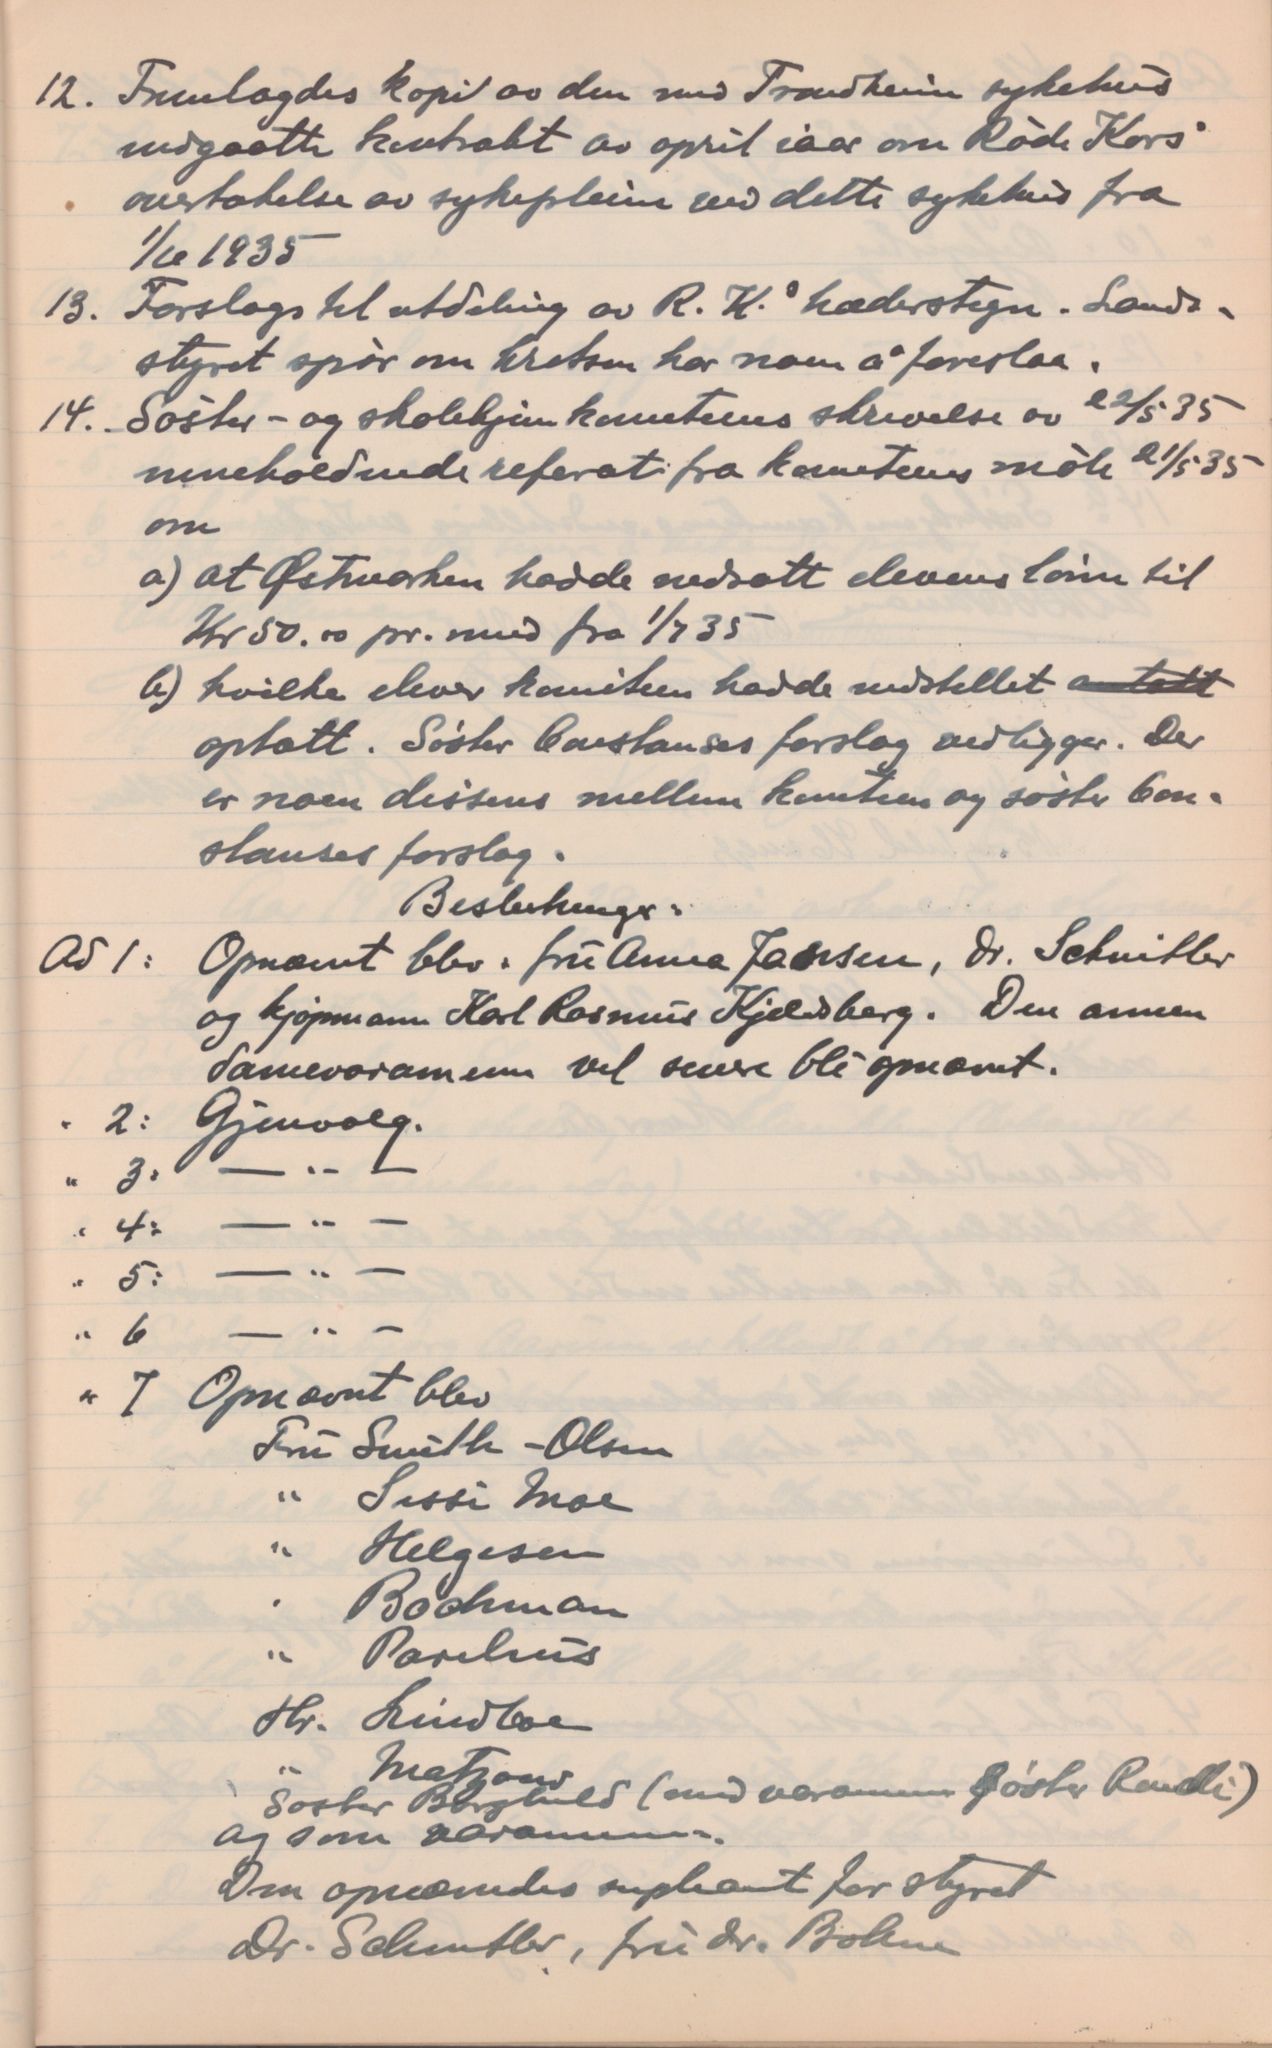 12. Fremlagdes kopi av den med Trondheim sykehus
indgaatte kontrakt av april iaar om Röde Kors'
overtakelse av sykepleien ved dette sykehus fra
1/10 1935
13. Forslags til utdeling av R. K.s hæderstegn. Lands-
styret spör om kretsen har noen å foreslaa.
14. Söster- og skolehjemkomiteens skrivelse av 22/5 35
inneholdende referat fra komiteens möte 21/5 35
om
a) at Østmarken hadde nedsatt elevens lönn til
Kr 50.00 pr. mnd fra 1/7 35
b) hvilke elever komiteen hadde indstillet antatt
optatt. Söster Constanses forslag vedligger. Der
er noen dissens mellem komiteen og söster Con-
stanses forslag.
Beslutninger:
Ad 1: Opnævnt blev: frü Anna Jansen, dr. Schnitler
og kjøpmann Karl Rasmus Kjeldsberg. Den annen
damevaramenn vil senere bli opnævnt.
" 2: Gjenvalg.
" 3: — " —
" 4: — " —
" 5: — " —
" 6 — " —
" 7 Opnævnt blev
Frü Smith-Olsen
" Sissi Moe
" Helgesen
" Bachman
" Parelius
Hr. Lindboe
" Matzow
Søster Borghild (med varamenn Søster Randi)
og som varamenn.
Den opnævndes supleant for styret
Dr. Schnitler, frü dr. Bohne